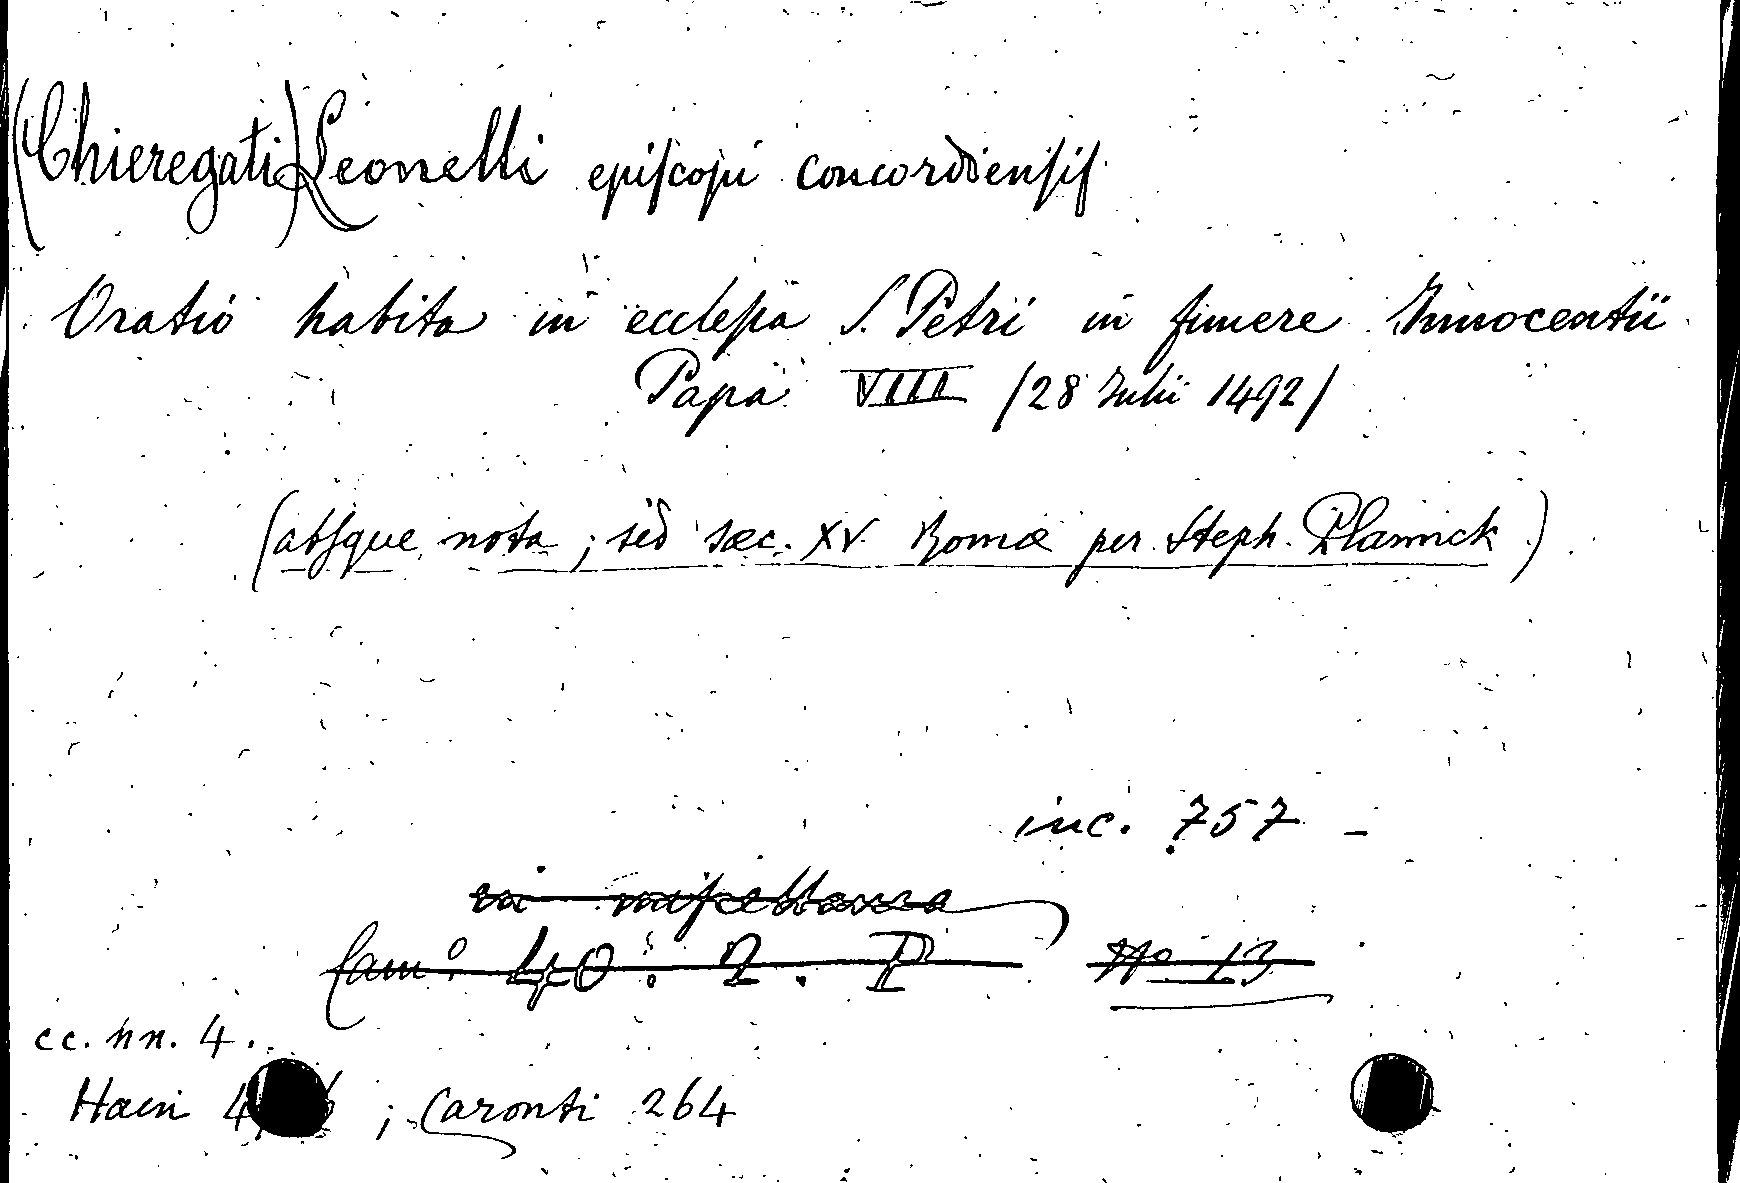 (Chieregati) Leonelli episcopi concordiensis
Oratio habita in ecclesia S. Petri in funere Innocentii
Papa VIII (28 Julii 1492)
(absque nota; sed sæc. XV Romæ per Steph. Plannick)
inc. 757 -
in miscellanea
Cam° 40: 2. P N° 13
cc. nn. 4.
Hain ; Caronti 264